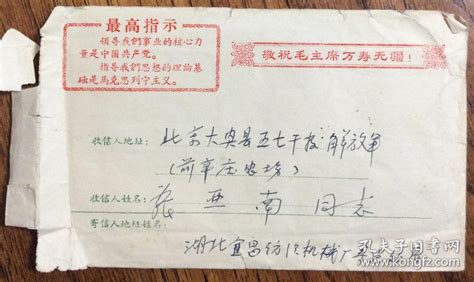 最高指示
领导我們事业的核心力
量是中國共产党。
指导我們思想的理論基
础是馬克思列宁主义。
敬祝毛主席万寿无疆！
收信人地址：
北京大兴县五七干校解放军
(前辛庄农场)
收信人姓名：
张亚南同志
寄信人地址姓名：
湖北宜昌纺织机械厂
孔夫子旧书网
www.kongfz.com